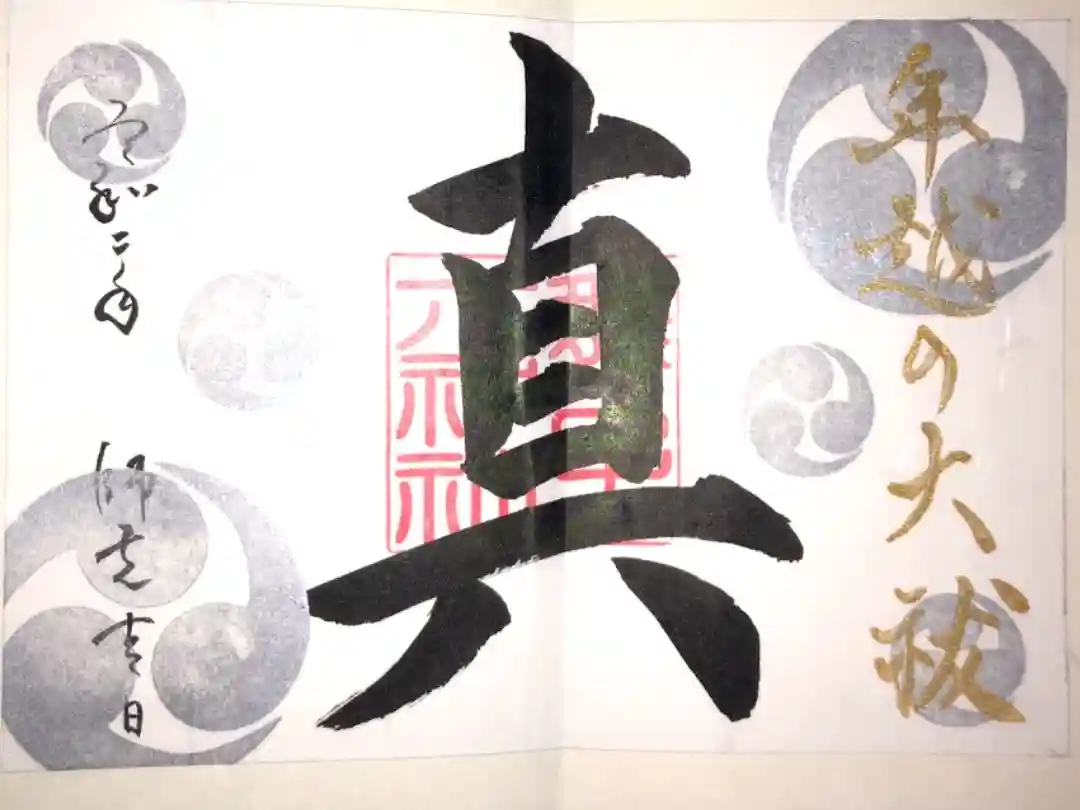 年越の大祓
真
令和二年 師走吉日